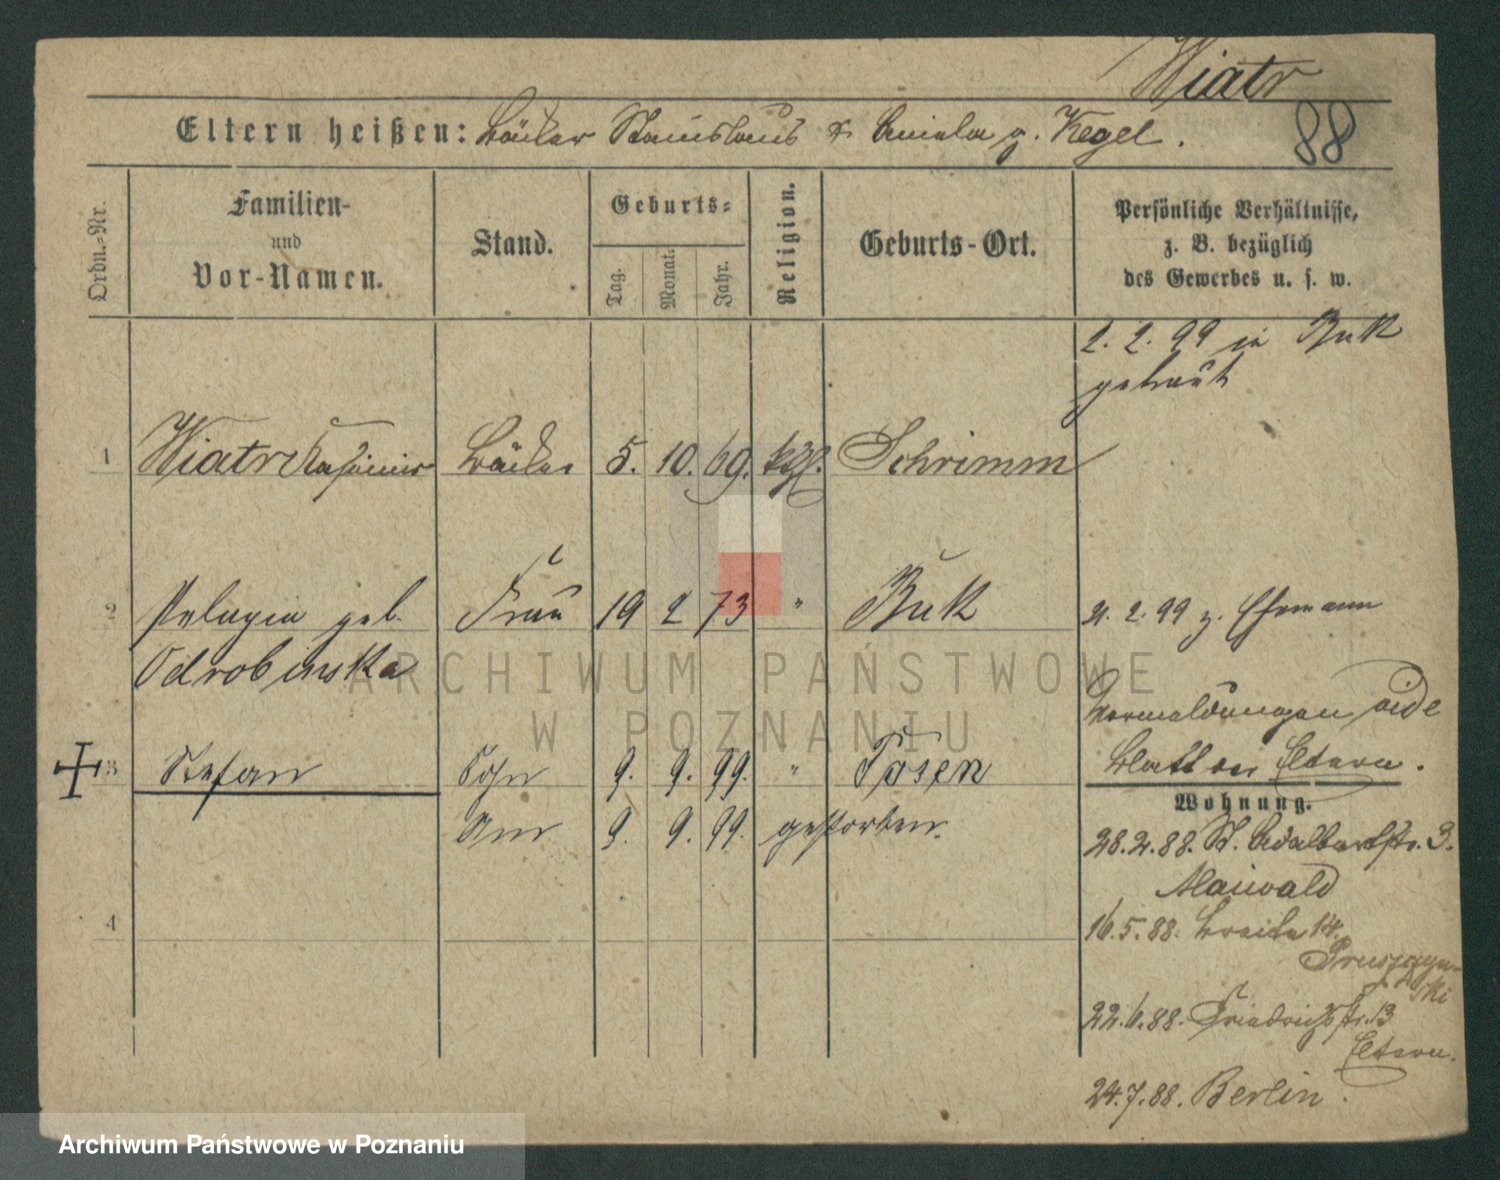 Wiatr
Eltern heißen: Bäcker Stanislaus & Aniela g. Kegel.
88
Ordn.-Nr.
Familien-
und
Vor-Namen.
Stand.
Geburts-
Tag.
Monat.
Jahr.
Religion.
Geburts-Ort.
Persönliche Verhältnisse,
z. B. bezüglich
des Gewerbes u. s. w.
2. 2. 99 in Buk
getraut
1 Wiatr Kasimir Bäcker 5. 10. 69. kth. Schrimm
2 Pelagia geb. Frau 19 2 73 " Buk 21. 2. 99 z. Ehemann
Odrobinska
Vermeldungen siehe
Blatt der Eltern.
3 Stefan Sohn 9. 9. 99. " Posen
Am 9. 9. 99. gestorben.
4
Wohnung.
28.2.88. St. Adalbertstr. 3.
Maiwald
16.5.88. Breite 14.
22.6.88. Friedrichstr. 13
Eltern.
24.7.88. Berlin.
ARCHIWUM PAŃSTWOWE
W POZNANIU
Archiwum Państwowe w Poznaniu